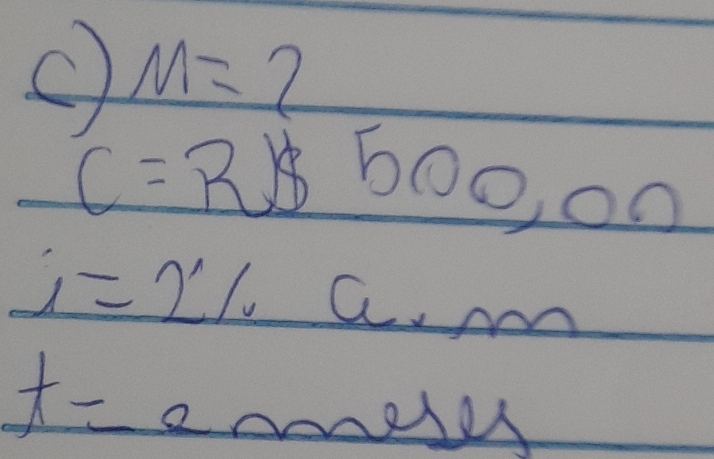 c) M = ?
C = R$ 500,00
i = 2% a.m
t = 2 meses